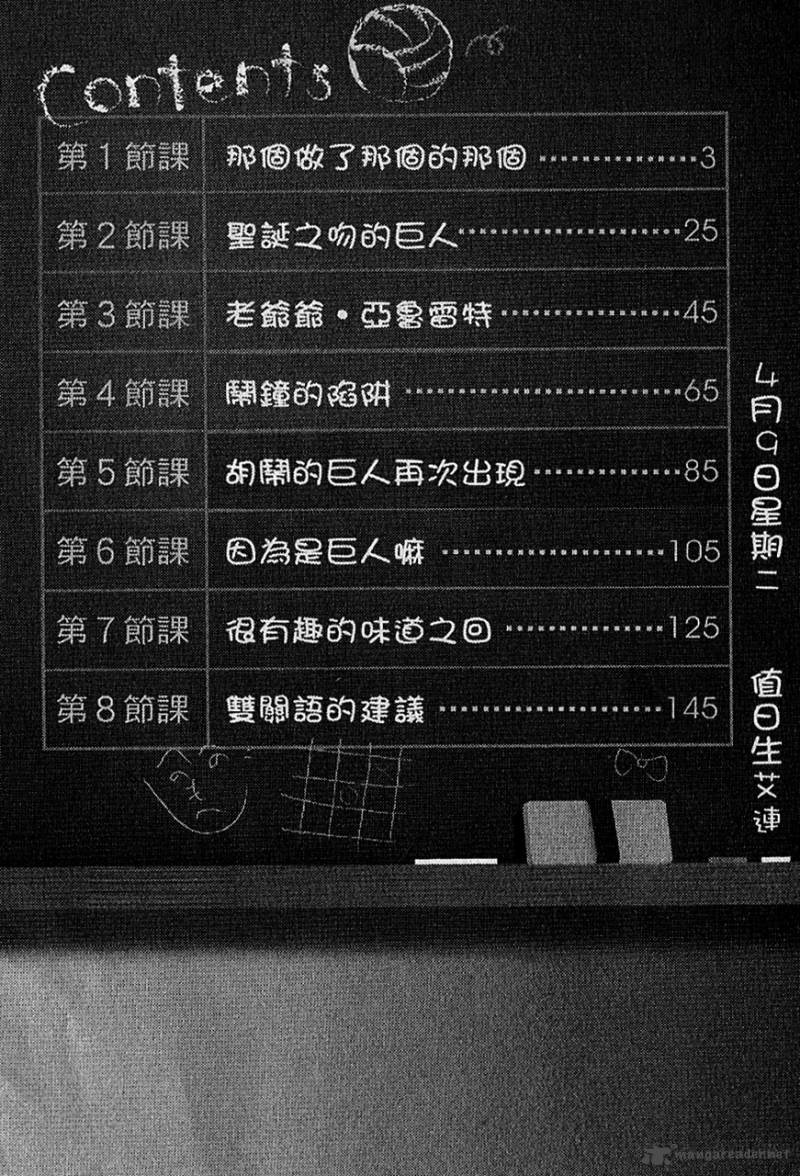 Contents
第1節課 那個做了那個的那個 3
第2節課 聖誕之吻的巨人 25
第3節課 老爺爺・亞魯雷特 45
第4節課 鬧鐘的陷阱 65
第5節課 胡鬧的巨人再次出現 85
第6節課 因為是巨人嘛 105
第7節課 很有趣的味道之回 125
第8節課 雙關語的建議 145
4月9日星期二
值日生艾連
mangareader.net